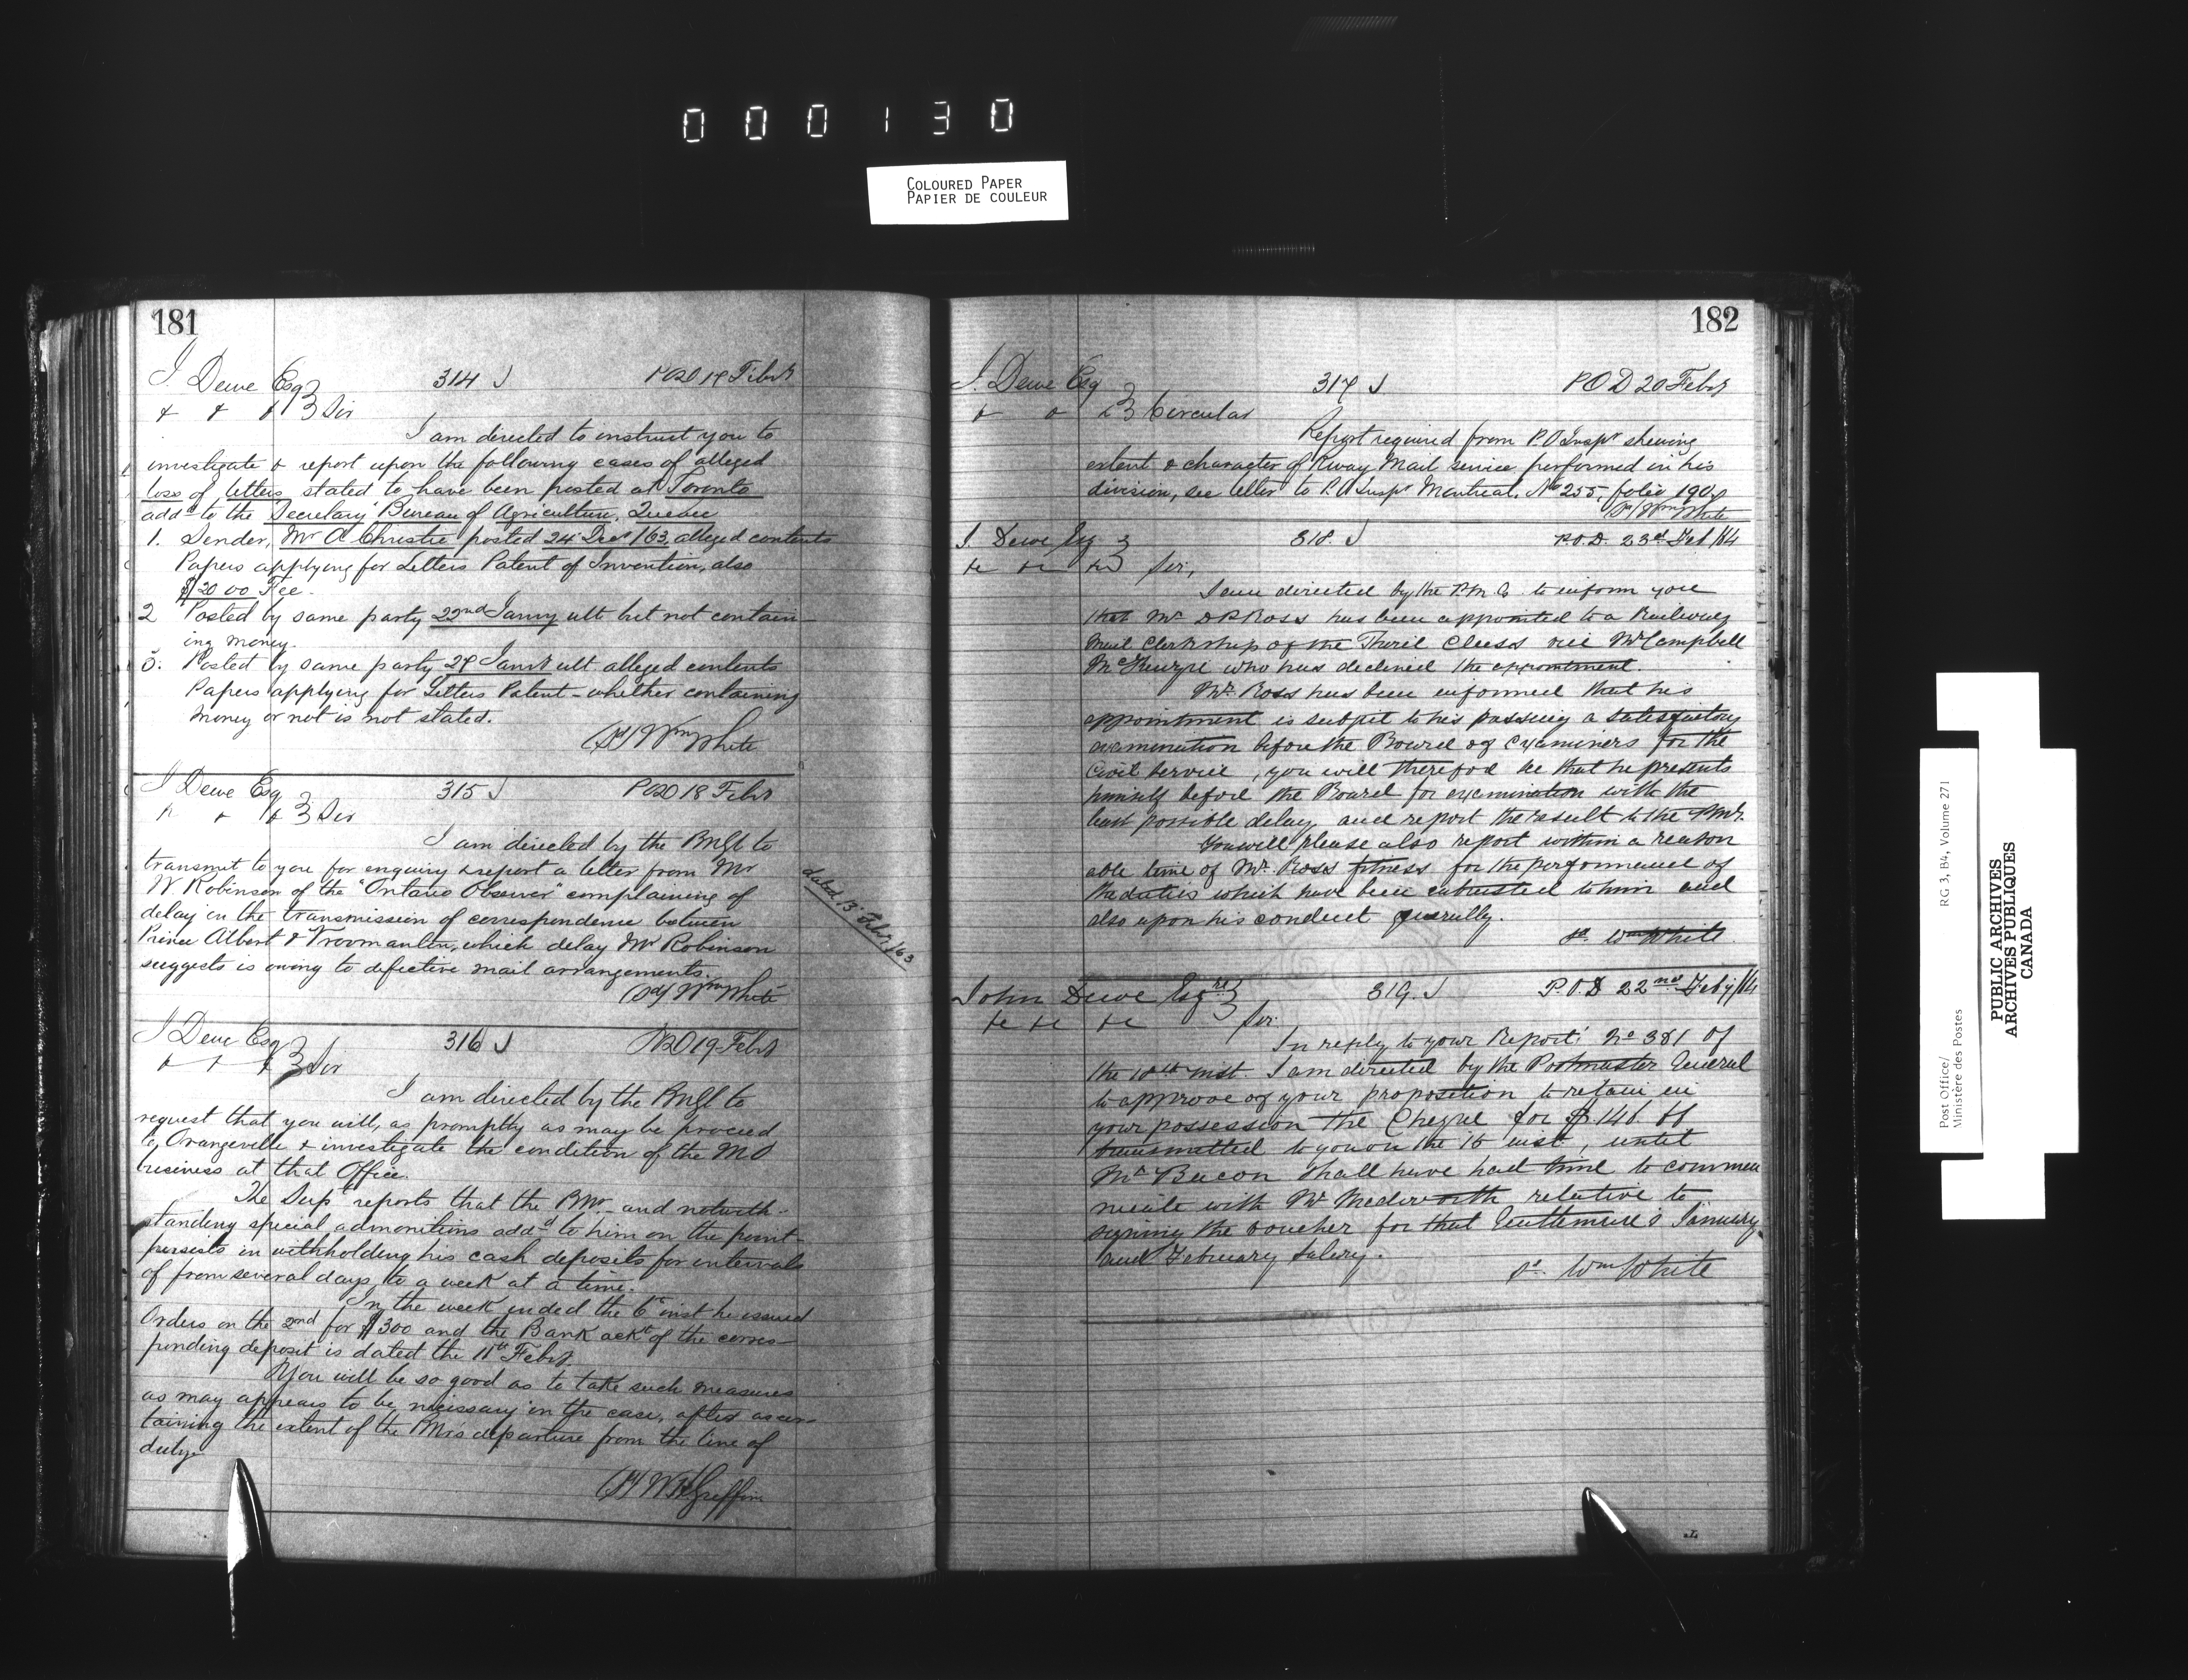 000130
COLOURED PAPER
PAPIER DE COULEUR
181
J. Dewe Esq
314 J
POD 17 Febr
& & & } Sir
I am directed to instruct you to
investigate & report upon the following cases of alleged
loss of letters stated to have been posted at Toronto
addd to the Secretary Bureau of Agriculture, Quebec
1. Sender, Mr A Christie posted 24 Decr /63 alleged contents
Papers applying for Letters Patent of Invention, also
$20.00 Fee.
2 Posted by same party 22nd Janry ult but not contain-
ing money.
3. Posted by same party 27 Janr ult alleged contents
Papers applying for Letters Patent - whether containing
money or not is not stated.
(Sd) Wm White
J Dewe Esq
315 J
POD 18 Febr
& & & } Sir
I am directed by the PMGl to
transmit to you for enquiry & report a letter from Mr
W Robinson of the "Ontario Observer" complaining of
delay in the transmission of correspondence between
Prince Albert & Vroomanton, which delay Mr Robinson
suggests is owing to defective mail arrangements.
dated 13 Febr /63
(Sd) Wm White
J Dewe Esq
316 J
POD 19 Febr
& & & } Sir
I am directed by the PMGl to
request that you will, as promptly as may be proceed
to Orangeville & investigate the condition of the MO
business at that Office.
The Supt reports that the PMr - and notwith-
standing special admonitions addd to him on the point -
persists in withholding his cash deposits for intervals
of from several days, to a week at a time.
In the week ended the 6th inst he issued
Orders on the 2nd for $300 and the Bank ackt of the corres-
ponding deposit is dated the 11th Febr.
You will be so good as to take such measures
as may appears to be necessary in the case, after ascer-
taining the extent of the PMrs departure from the line of
duty.
(Sd) W H Griffin
182
J. Dewe Esq
317 J
P O D 20 Febr
& & & } Circular
Report required from P.O Inspr shewing
extent & character of Rway Mail service performed in his
division, see letter to P.O Inspr Montreal, No 255, folio 190
(Sd) Wm White
J. Dewe Esq }
318. J
P.O.D. 23rd Feb /64
&c &c &c } Sir,
I am directed by the P.M.G. to inform you
that Mr D R Ross has been appointed to a Railway
Mail Clerkship of the Third Class vice Mr Campbell
McKenzie who has declined the appointment.
Mr. Ross has been informed that his
appointment is subject to his passing a satisfactory
examination before the Board of Examiners for the
Civil Service, you will therefore see that he presents
himself before the Board for examination with the
least possible delay and report the result to the PMr.
You will please also report within a reason
able time of Mr. Ross fitness for the performance of
the duties which have been entrusted to him and
also upon his conduct generally.
sd. Wm White
John Dewe Esqre }
319. J
P.O.D 22nd Feby /64
&c &c &c } Sir.
In reply to your Report No 381 of
the 10th inst I am directed by the Postmaster General
to approve of your proposition to retain in
your possession the Cheque for $.146.66
transmitted to you on the 15 inst, until
Mr Bacon shall have had time to commu
nicate with Mr relative to
signing the voucher for that Gentleman's January
and February Salary.
sd. Wm White
Post Office/
Ministère des Postes
RG 3, B4, Volume 271
PUBLIC ARCHIVES
ARCHIVES PUBLIQUES
CANADA